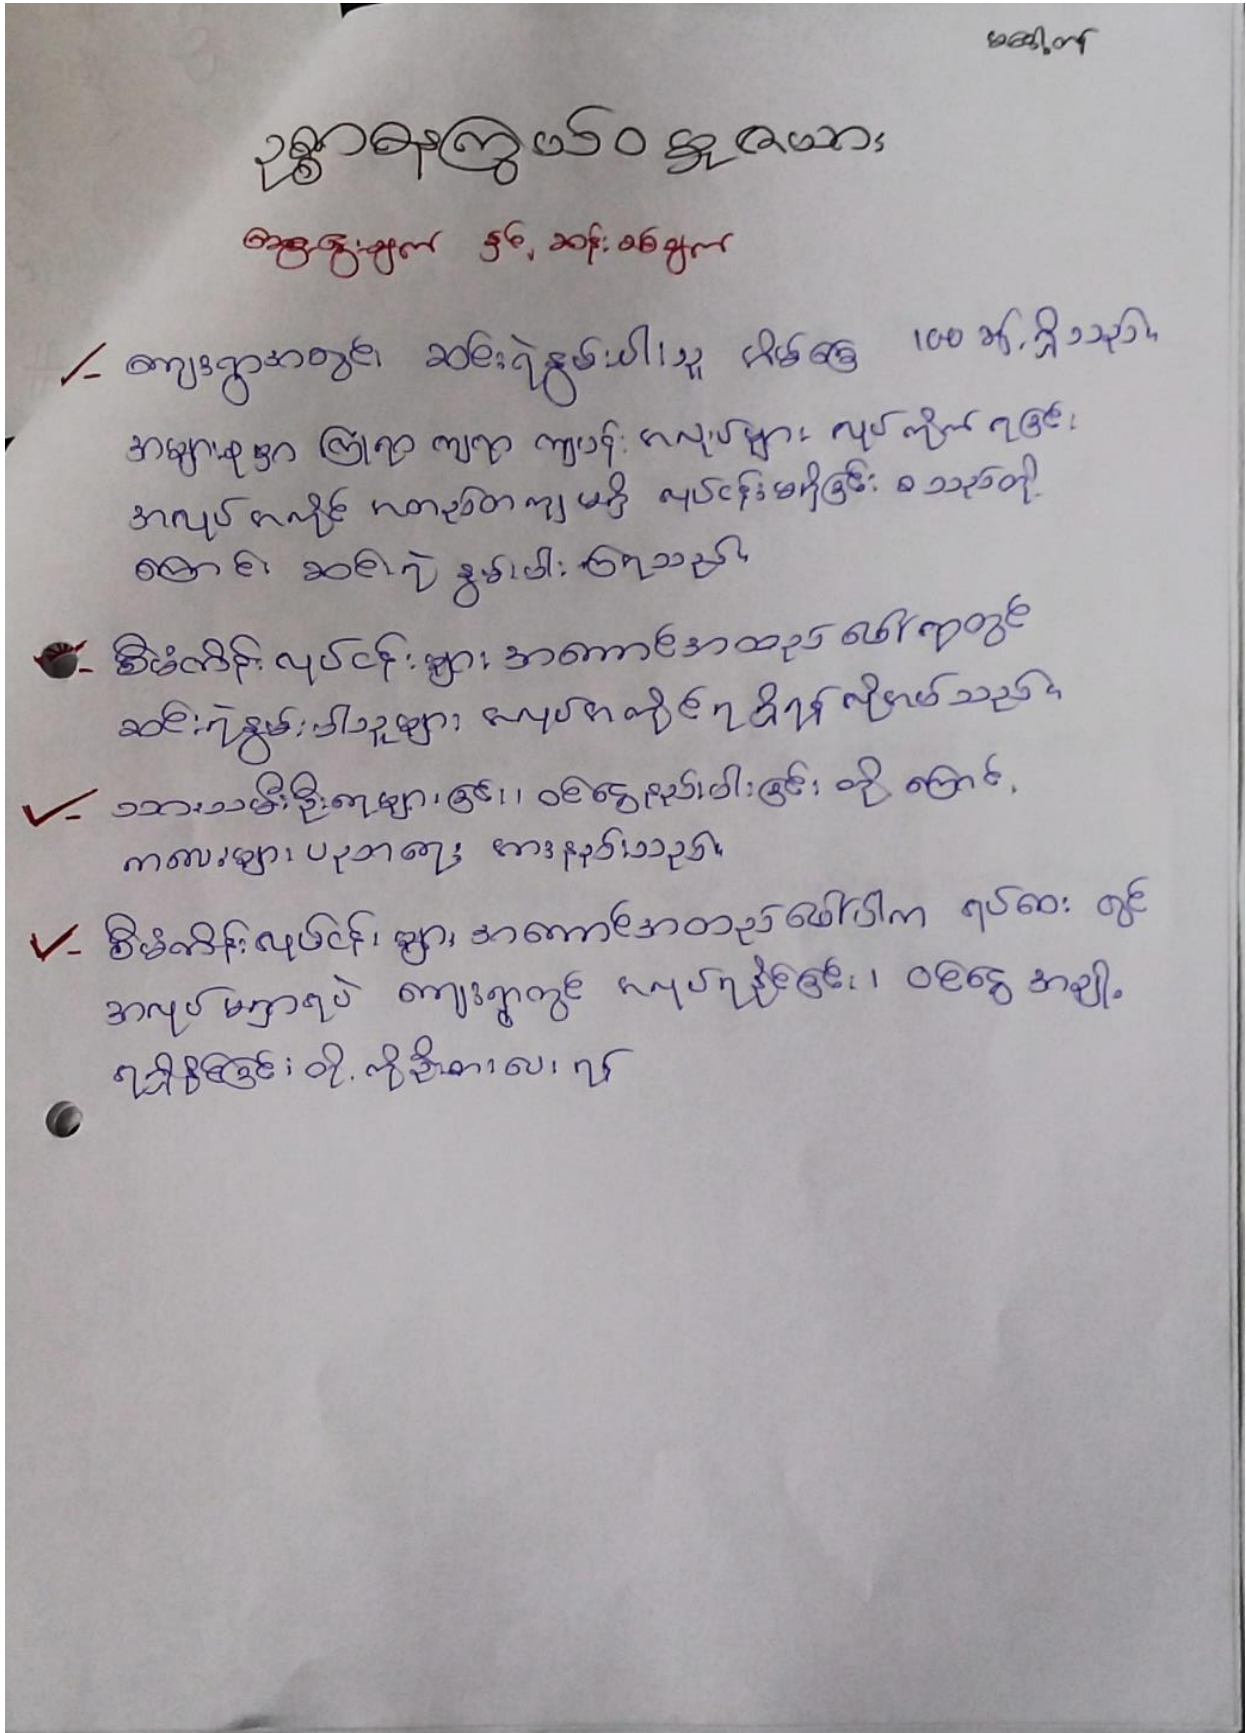 ဥစ္စာဓနကြွယ်ဝမှုဇယား
ဆွေးနွေးချက် နှင့် ဆန်းစစ်ချက်
- ကျေးရွာအတွင်း ဆင်းရဲနွမ်းပါးသူ အိမ်ခြေ ၊ ၁၀၀ ခန့် ရှိသည်။
အများစုမှာ ကြုံရာ ကျရာ ကျပန်း အလုပ်များ လုပ်ကိုင် ရခြင်း
အလုပ် အကိုင် အတည်တကျ မရှိ လုပ်ငန်းမရှိခြင်း စသည်တို့
ကြောင့် ဆင်းရဲ နွမ်းပါး ကြရသည်။
- စီမံကိန်း လုပ်ငန်းများ အကောင်အထည် ဖော်ရာတွင်
ဆင်းရဲနွမ်းပါးသူများ အလုပ်အကိုင် ရရှိရန် လိုအပ်သည်။
- သားသမီးဦးရေများခြင်း၊ ဝင်ငွေနည်းပါးခြင်း တို့ကြောင့်
ကလေးများ ပညာရေး အားနည်းသည်။
- စီမံကိန်းလုပ်ငန်း များ အကောင်အတည်ဖော်ပါက ရပ်ဝေး တွင်
အလုပ် မရှာရပဲ ကျေးရွာတွင် အလုပ်ရနိုင်ခြင်း၊ ဝင်ငွေ အချို့
ရရှိနိုင်ခြင်း တို့ ကိုဦးစားပေး ရန်